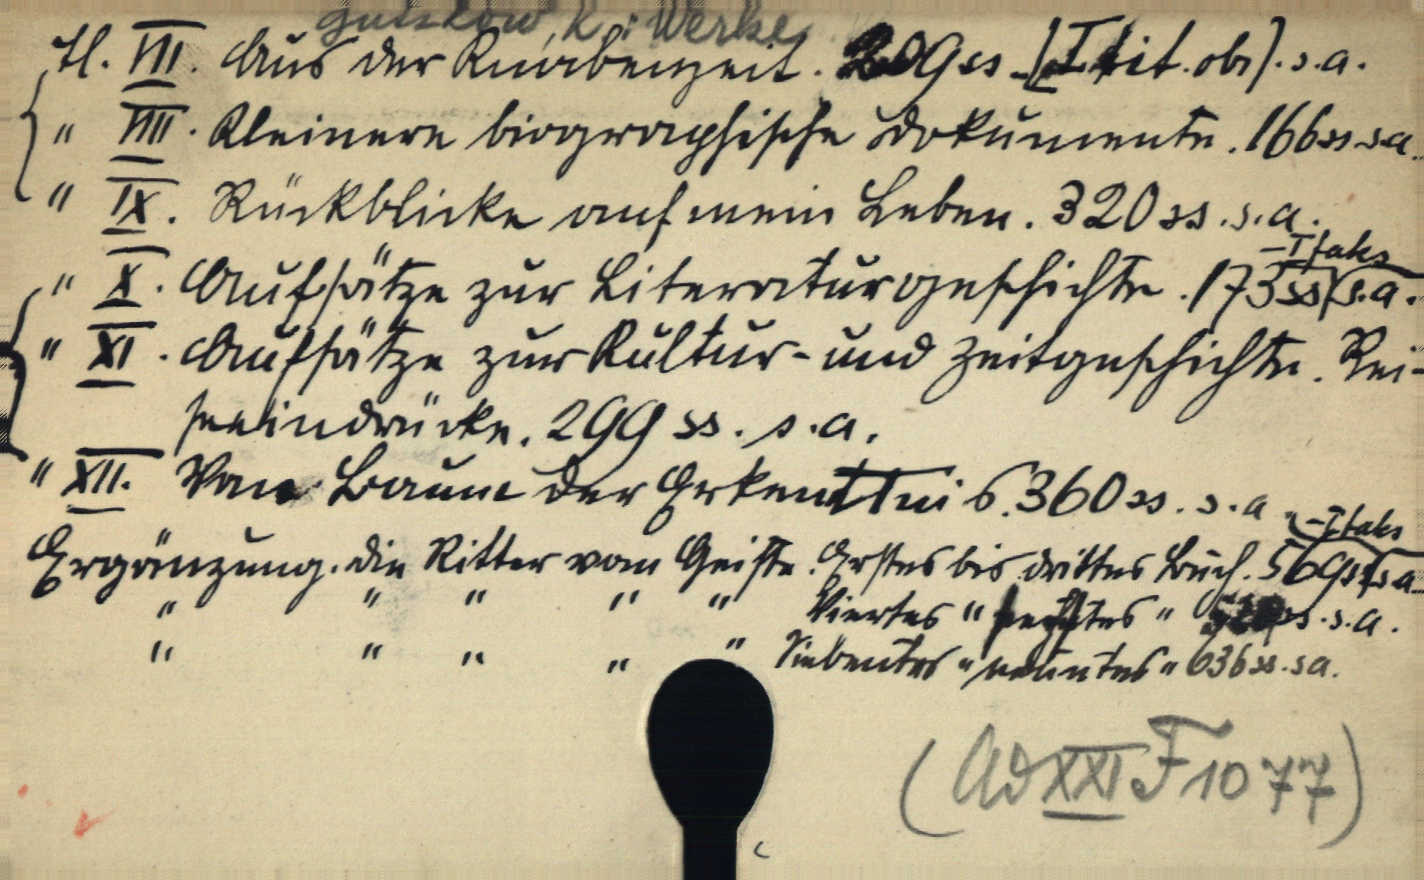 Gutzkow K: Werke.
Tl. VII. Aus der Knabenzeit. 209 ss. (I tit. obr.). s.a.
" VIII. Kleinere biographische Dokumente. 166 ss. s.a.
" IX. Rückblicke auf mein Leben. 320 ss. s.a.
" X. Aufsätze zur Literaturgeschichte. 173 ss (s.a. – I faks
" XI. Aufsätze zur Kultur- und Zeitgeschichte. Rei-
seeindrücke. 299 ss. s.a.
" XII. Vom Baum der Erkenntnis. 360 ss. s.a.
Ergänzung. die Ritter vom Geiste. Erstes bis drittes Buch. 569 ss (s.a. – I faks
" " " " " Viertes " sechstes " ss. s.a.
" " " " " Siebentes " neuntes " 636 ss. s.a.
(Ad XXI F 1077)